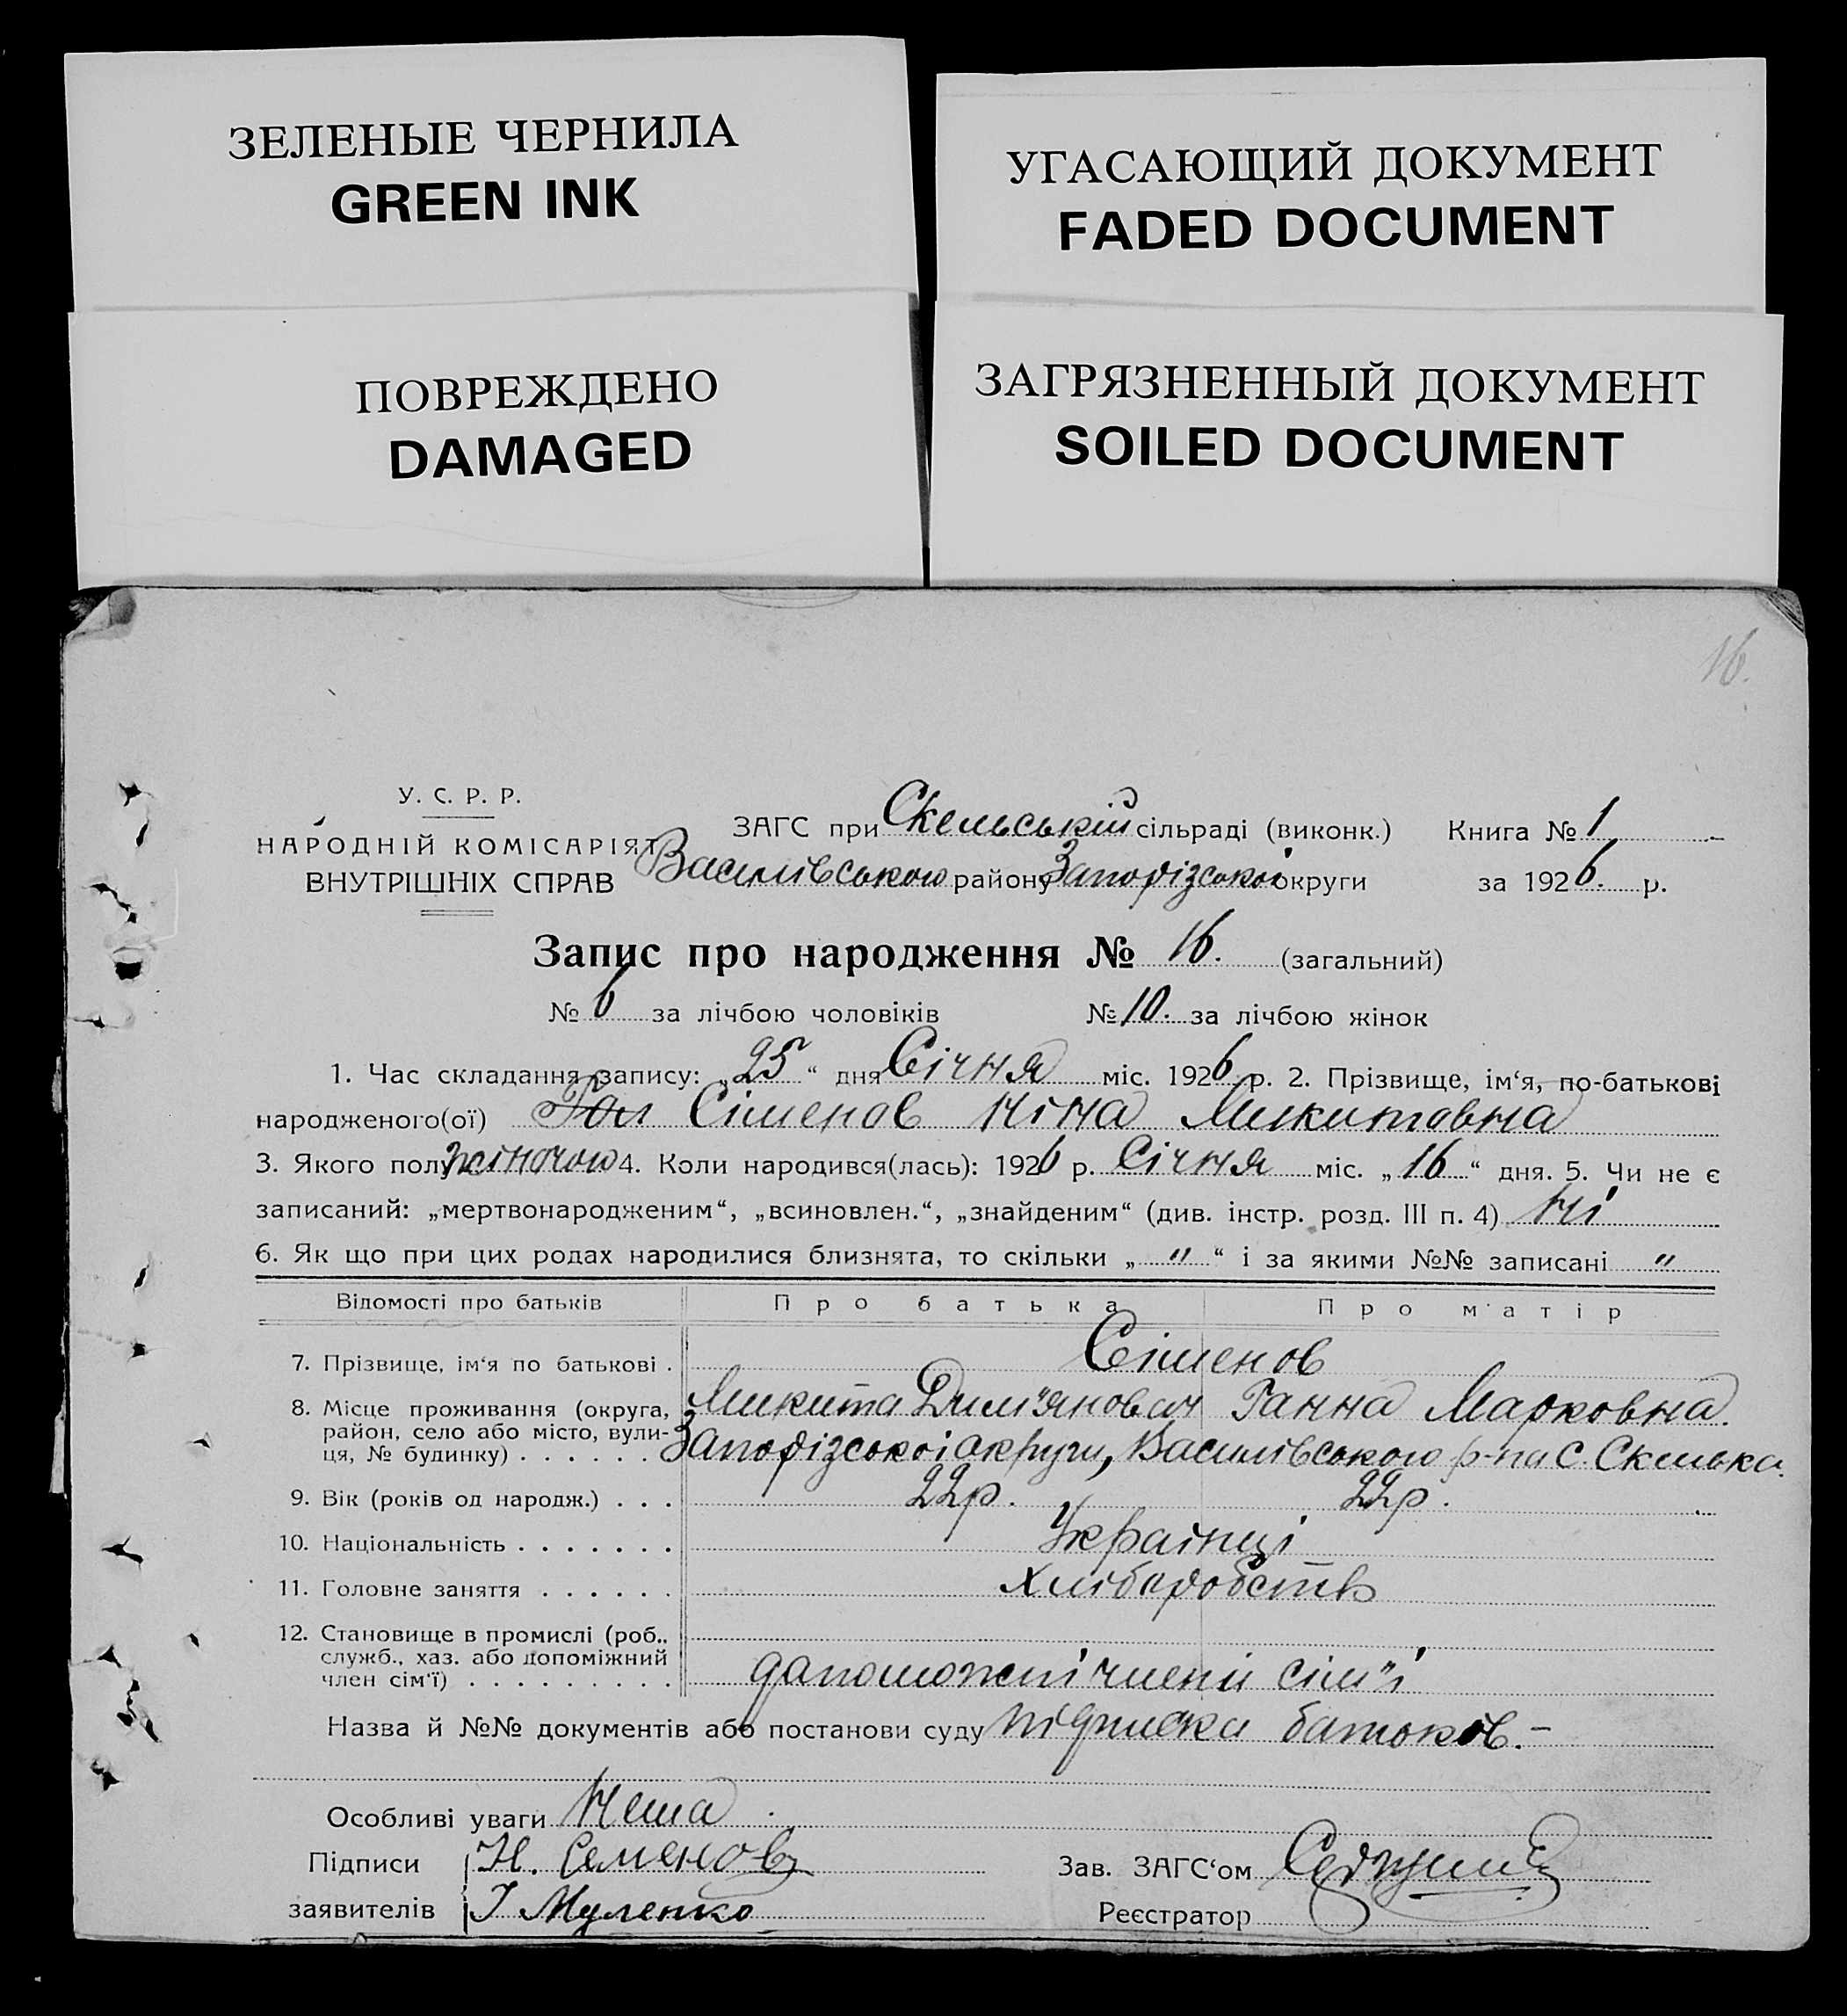 ЗЕЛЕНЫЕ ЧЕРНИЛА
GREEN INK
УГАСАЮЩИЙ ДОКУМЕНТ
FADED DOCUMENT
ПОВРЕЖДЕНО
DAMAGED
ЗАГРЯЗНЕННЫЙ ДОКУМЕНТ
SOILED DOCUMENT
16.
У. С. Р. Р.
НАРОДНІЙ КОМІСАРІЯТ
ВНУТРІШНІХ СПРАВ
ЗАГС при Скельській сільраді (виконк.) Книга № 1
Василівського району Запорізської округи за 1926. р.
Запис про народження № 16. (загальний)
№ 6 за лічбою чоловіків № 10. за лічбою жінок
1. Час складання запису: „25“ дня Січня міс. 1926 р. 2. Прізвище, ім‘я, по-батькові
народженого(ої) Сіменов Ніна Микитовна
3. Якого полу жіночого 4. Коли народився(лась): 1926 р. Січня міс. „16“ дня. 5. Чи не є
записаний: „мертвонародженим“, „всиновлен.“, „знайденим“ (див. інстр. розд. III п. 4) ні
6. Як що при цих родах народилися близнята, то скільки „ " “ і за якими №№ записані "
Відомості про батьків Про батька Про матір
7. Прізвище, ім‘я по батькові . Сіменов
Микита Дим'янович Ганна Марковна.
8. Місце проживання (округа,
район, село або місто, вули-
ця, № будинку) . . . . . . Запорізської округи, Василівського р-на С. Скелька.
9. Вік (років од народж.) . . . 22р. 22р.
10. Національність . . . . . . . Українці
11. Головне заняття . . . . . . Хліборобств
12. Становище в промислі (роб.,
служб., хаз. або допоміжний
член сім‘ї) . . . . . . . . . . дапоможні члени сім"ї
Назва й №№ документів або постанови суду підписка батьков. –
Особливі уваги Нема
Підписи Н. Семенов Зав. ЗАГС‘ом
заявителів І Муленко Реєстратор